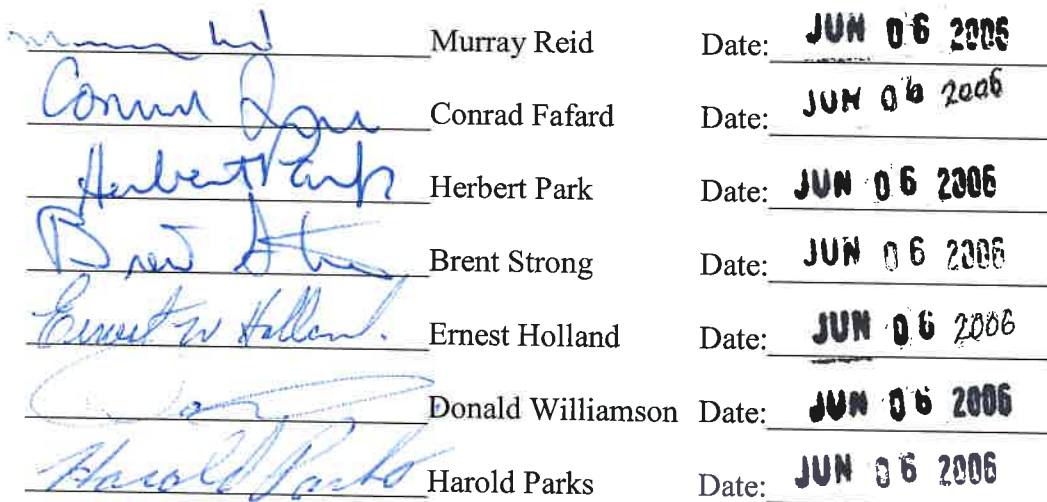 Murray Reid Date: JUN 06 2006
Conrad Fafard Date: JUN 06 2006
Herbert Park Herbert Park Date: JUN 06 2006
Brent Strong Date: JUN 06 2006
Ernest W Holland. Ernest Holland Date: JUN 06 2006
Donald Williamson Date: JUN 06 2006
Harold Parks Harold Parks Date: JUN 06 2006